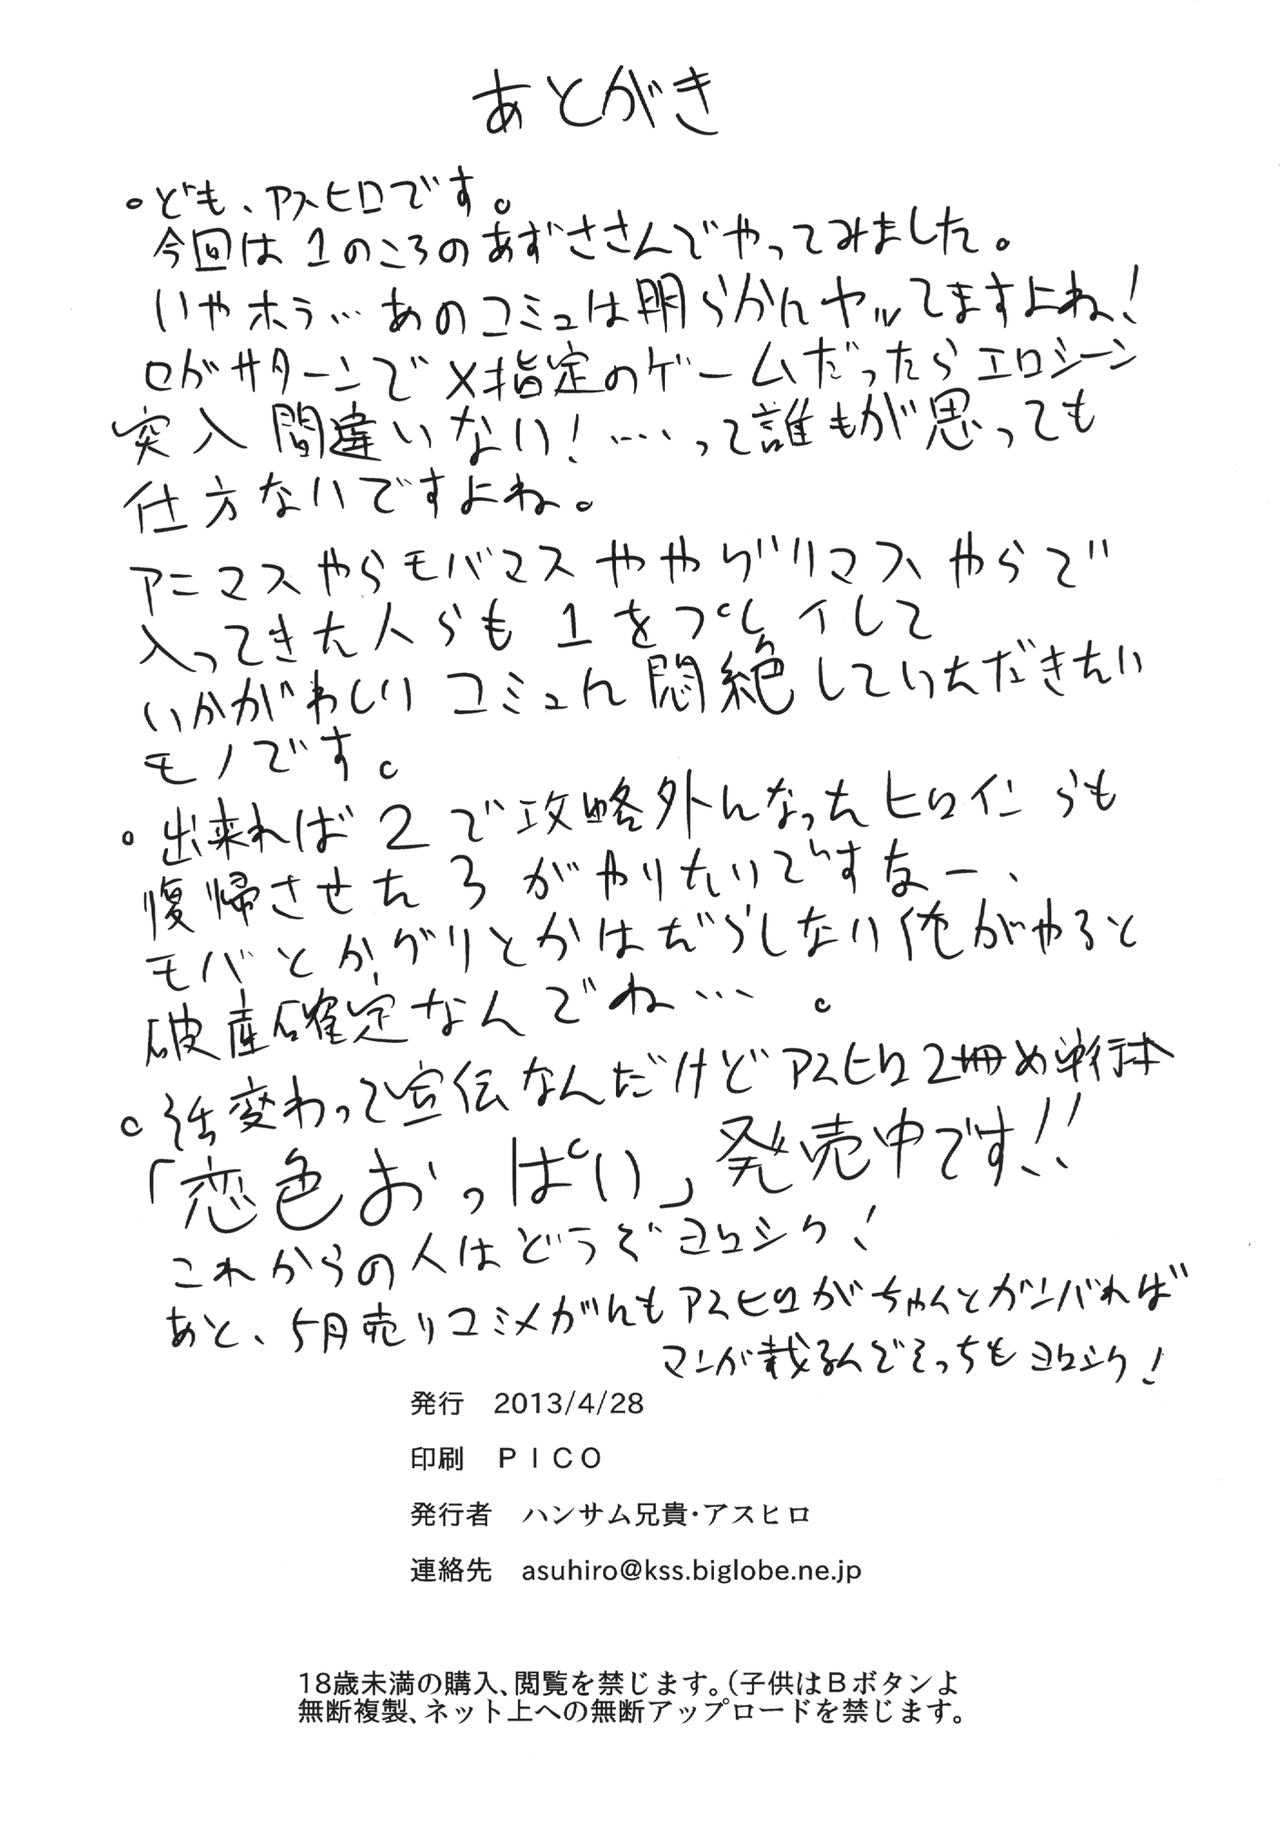 あとがき
。ども、アスヒロです。
今回は1のころのあずささんでやってみました。
いやホラ…あのコミュは明らかにヤッてますよね!
セガサターンでX指定のゲームだったらエロシーン
突入間違いない!……って誰もが思っても
仕方ないですよね。
アニマスやらモバマスややグリマスやらで
入ってきた人らも1をプレイして
いかがわしいコミュに悶絶していただきたい
モノです。
。出来れば2で攻略外になったヒロインらも
復帰させた3がやりたいですなー、
モバとかグリとかはだらしない俺がやると
破産確定なんでね…。
。話変わって宣伝なんだけどアスヒロ2冊め単行本
「恋色おっぱい」発売中です!!
これからの人はどうぞヨロシク!
あと、5月売りコミメガにもアスヒロがちゃんとガンバれば
マンガ載るんでそっちもヨロシク!
発行 2013/4/28
印刷 PICO
発行者 ハンサム兄貴・アスヒロ
連絡先 asuhiro@kss.biglobe.ne.jp
18歳未満の購入、閲覧を禁じます。(子供はBボタンよ
無断複製、ネット上への無断アップロードを禁じます。